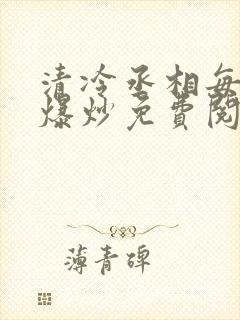 清冷丞相每
爆炒免费阅
薄青碑